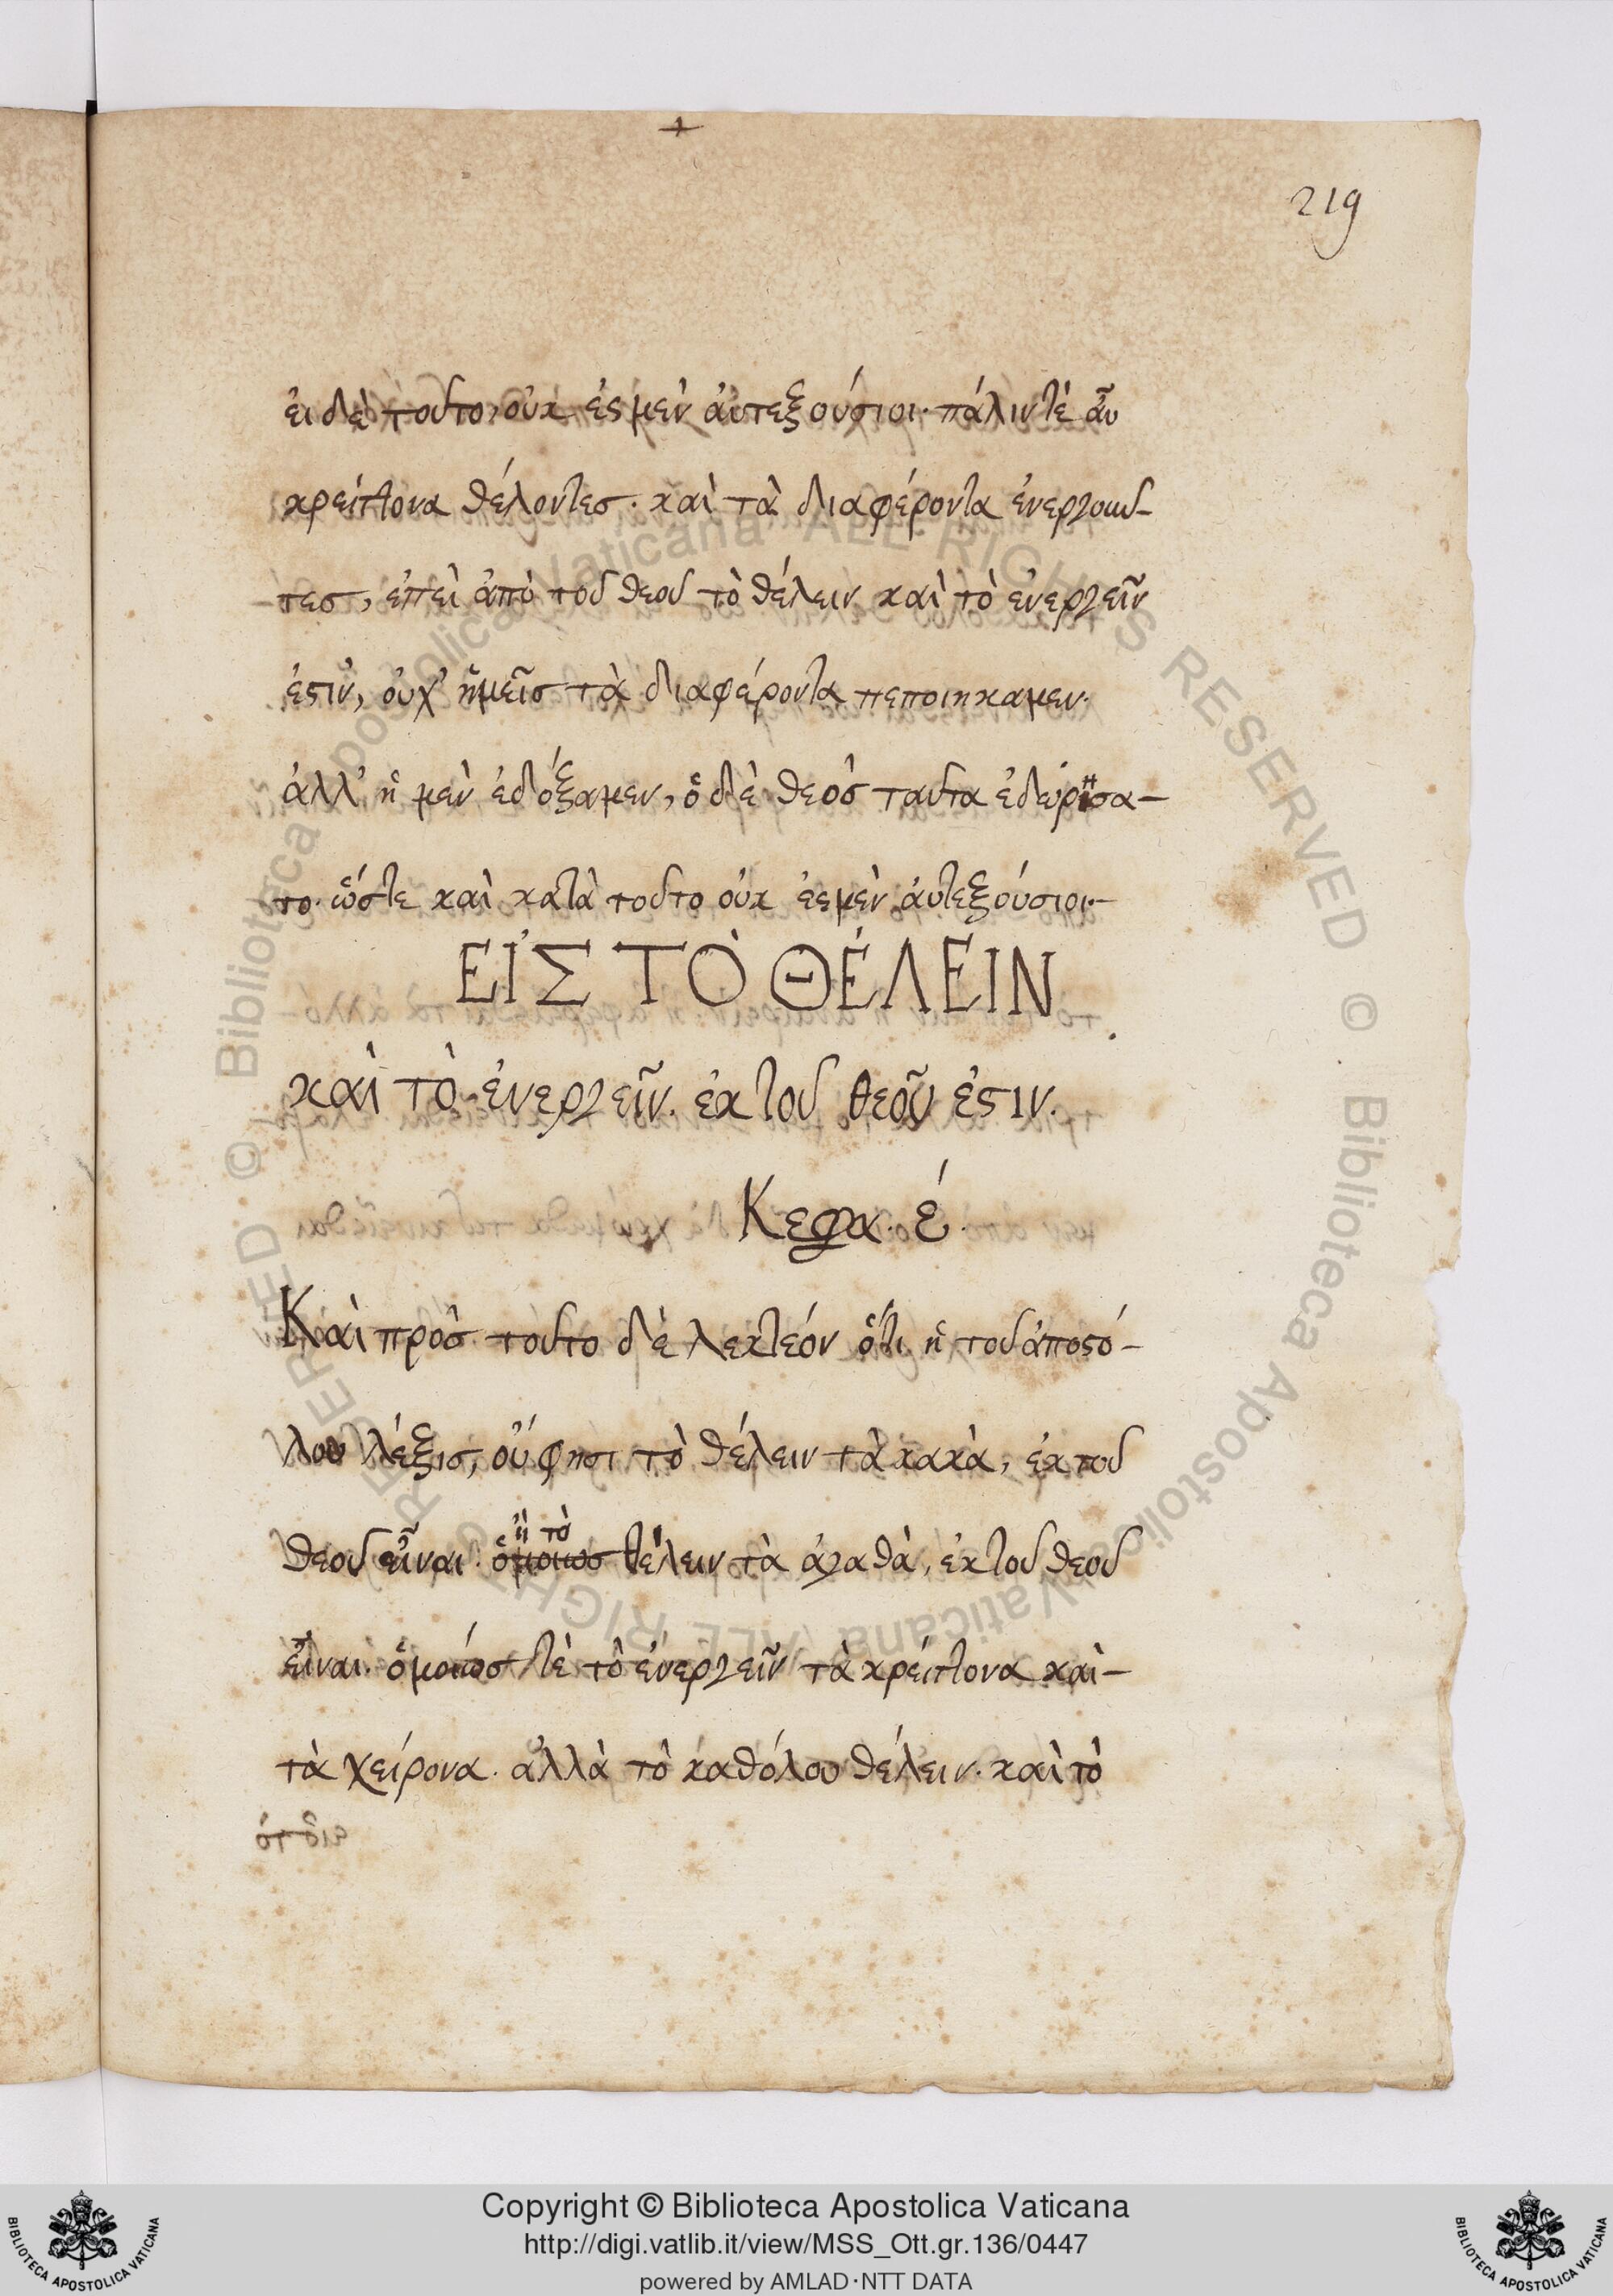 219
ἐι δὲ τοῦτο, οὐκ ἐσμὲν ἀυτεξούσιοι· πάλιν τὲ ἂυ
κρείττονα θέλοντες· καὶ τὰ διαφέροντα ἐνεργοῦν-
τες, ἐπεὶ ἀπὸ τοῦ θεοῦ τὸ θέλειν καὶ τὸ ἐνεργεῖν
ἐστιν, ὀυχ' ἡμεῖς τὰ διαφέροντα πεποιηκαμεν·
ἀλλ' ἡ μὲν ἐδόξαμεν, ὁ δὲ θεὸς ταῦτα ἐδωρήσα-
το· ὥστε καὶ κατὰ τοῦτο οὐκ ἐσμὲν ἀυτεξούσιοι·-
ΕἸΣ ΤῸ ΘΈΛΕΙΝ
καὶ τὸ ἐνεργεῖν· ἐκ τοῦ θεοῦ ἐστιν.
Κεφα· έ·
Καὶ πρὸς τοῦτο δὲ λεκτεόν ὅτι ἡ τοῦ ἀποστό-
λου λέξις, οὔ φησι τὸ θέλειν τὰ κακὰ, ἐκ τοῦ
θεοῦ εἶναι· ὁμοιως ἢ τὸ θέλειν τὰ ἀγαθὰ, ἐκ τοῦ θεοῦ
εἶναι· ὁμοίως τὲ τὸ ἐνεργεῖν τὰ κρείττονα καὶ-
τὰ χείρονα· ἀλλὰ τὸ καθόλου θέλειν· καὶ τὸ
Copyright © Biblioteca Apostolica Vaticana
http://digi.vatlib.it/view/MSS_Ott.gr.136/0447
powered by AMLAD·NTT DATA
BIBLIOTECA APOSTOLICA VATICANA
BIBLIOTECA APOSTOLICA VATICANA
© Biblioteca Apostolica Vaticana ALL RIGHTS RESERVED © Biblioteca Apostolica Vaticana ALL RIGHTS RESERVED